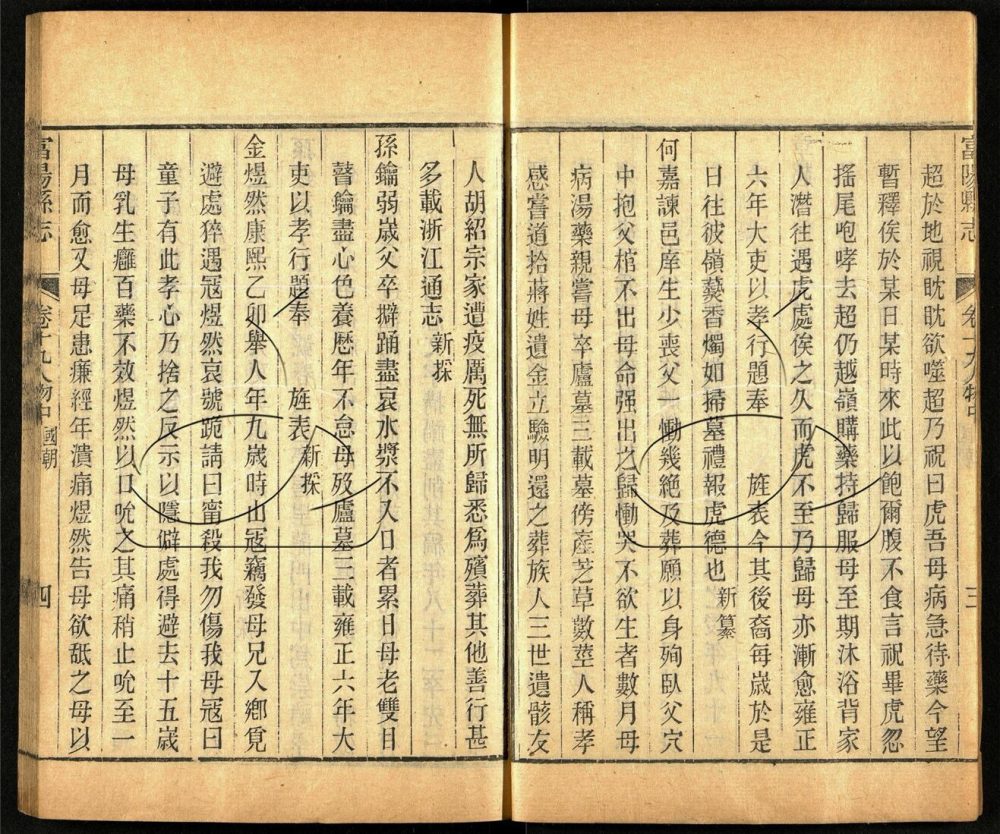 富陽縣志 卷十九 人物中 三
超於地視眈眈欲噬超乃祝曰虎吾母病急待藥今望
暫釋俟於某日某時來此以飽爾腹不食言祝畢虎忽
搖尾咆哮去超仍越嶺購藥持歸服母至期沐浴背家
人潛往遇虎處俟之久而虎不至乃歸母亦漸愈雍正
六年大吏以孝行題奉 旌表今其後裔每歲於是
日往彼嶺爇香燭如掃墓禮報虎德也新纂
何嘉諫邑庠生少喪父一慟幾絕及葬願以身殉臥父穴
中抱父棺不出母命强出之歸慟哭不欲生者數月母
病湯藥親嘗母卒廬墓三載墓傍產芝草數莖人稱孝
感嘗道拾蔣姓遺金立驗明還之葬族人三世遺骸友
人胡紹宗家遭疫厲死無所歸悉爲殯葬其他善行甚
多載浙江通志新採
孫鑰弱歲父卒擗踊盡哀水漿不入口者累日母老雙目
瞽鑰盡心色養歷年不怠母歿廬墓三載雍正六年大
吏以孝行題奉 旌表新採
金煜然康熙乙卯舉人年九歲時山寇竊發母兄入鄉覓
避處猝遇寇煜然哀號跪請曰甯殺我勿傷我母寇曰
童子有此孝心乃捨之反示以隱僻處得避去十五歲
母乳生癰百藥不效煜然以口吮之其痛稍止吮至一
月而愈又母足患㾾經年潰痛煜然告母欲舐之母以
富陽縣志 卷十九 人物中 國朝 四